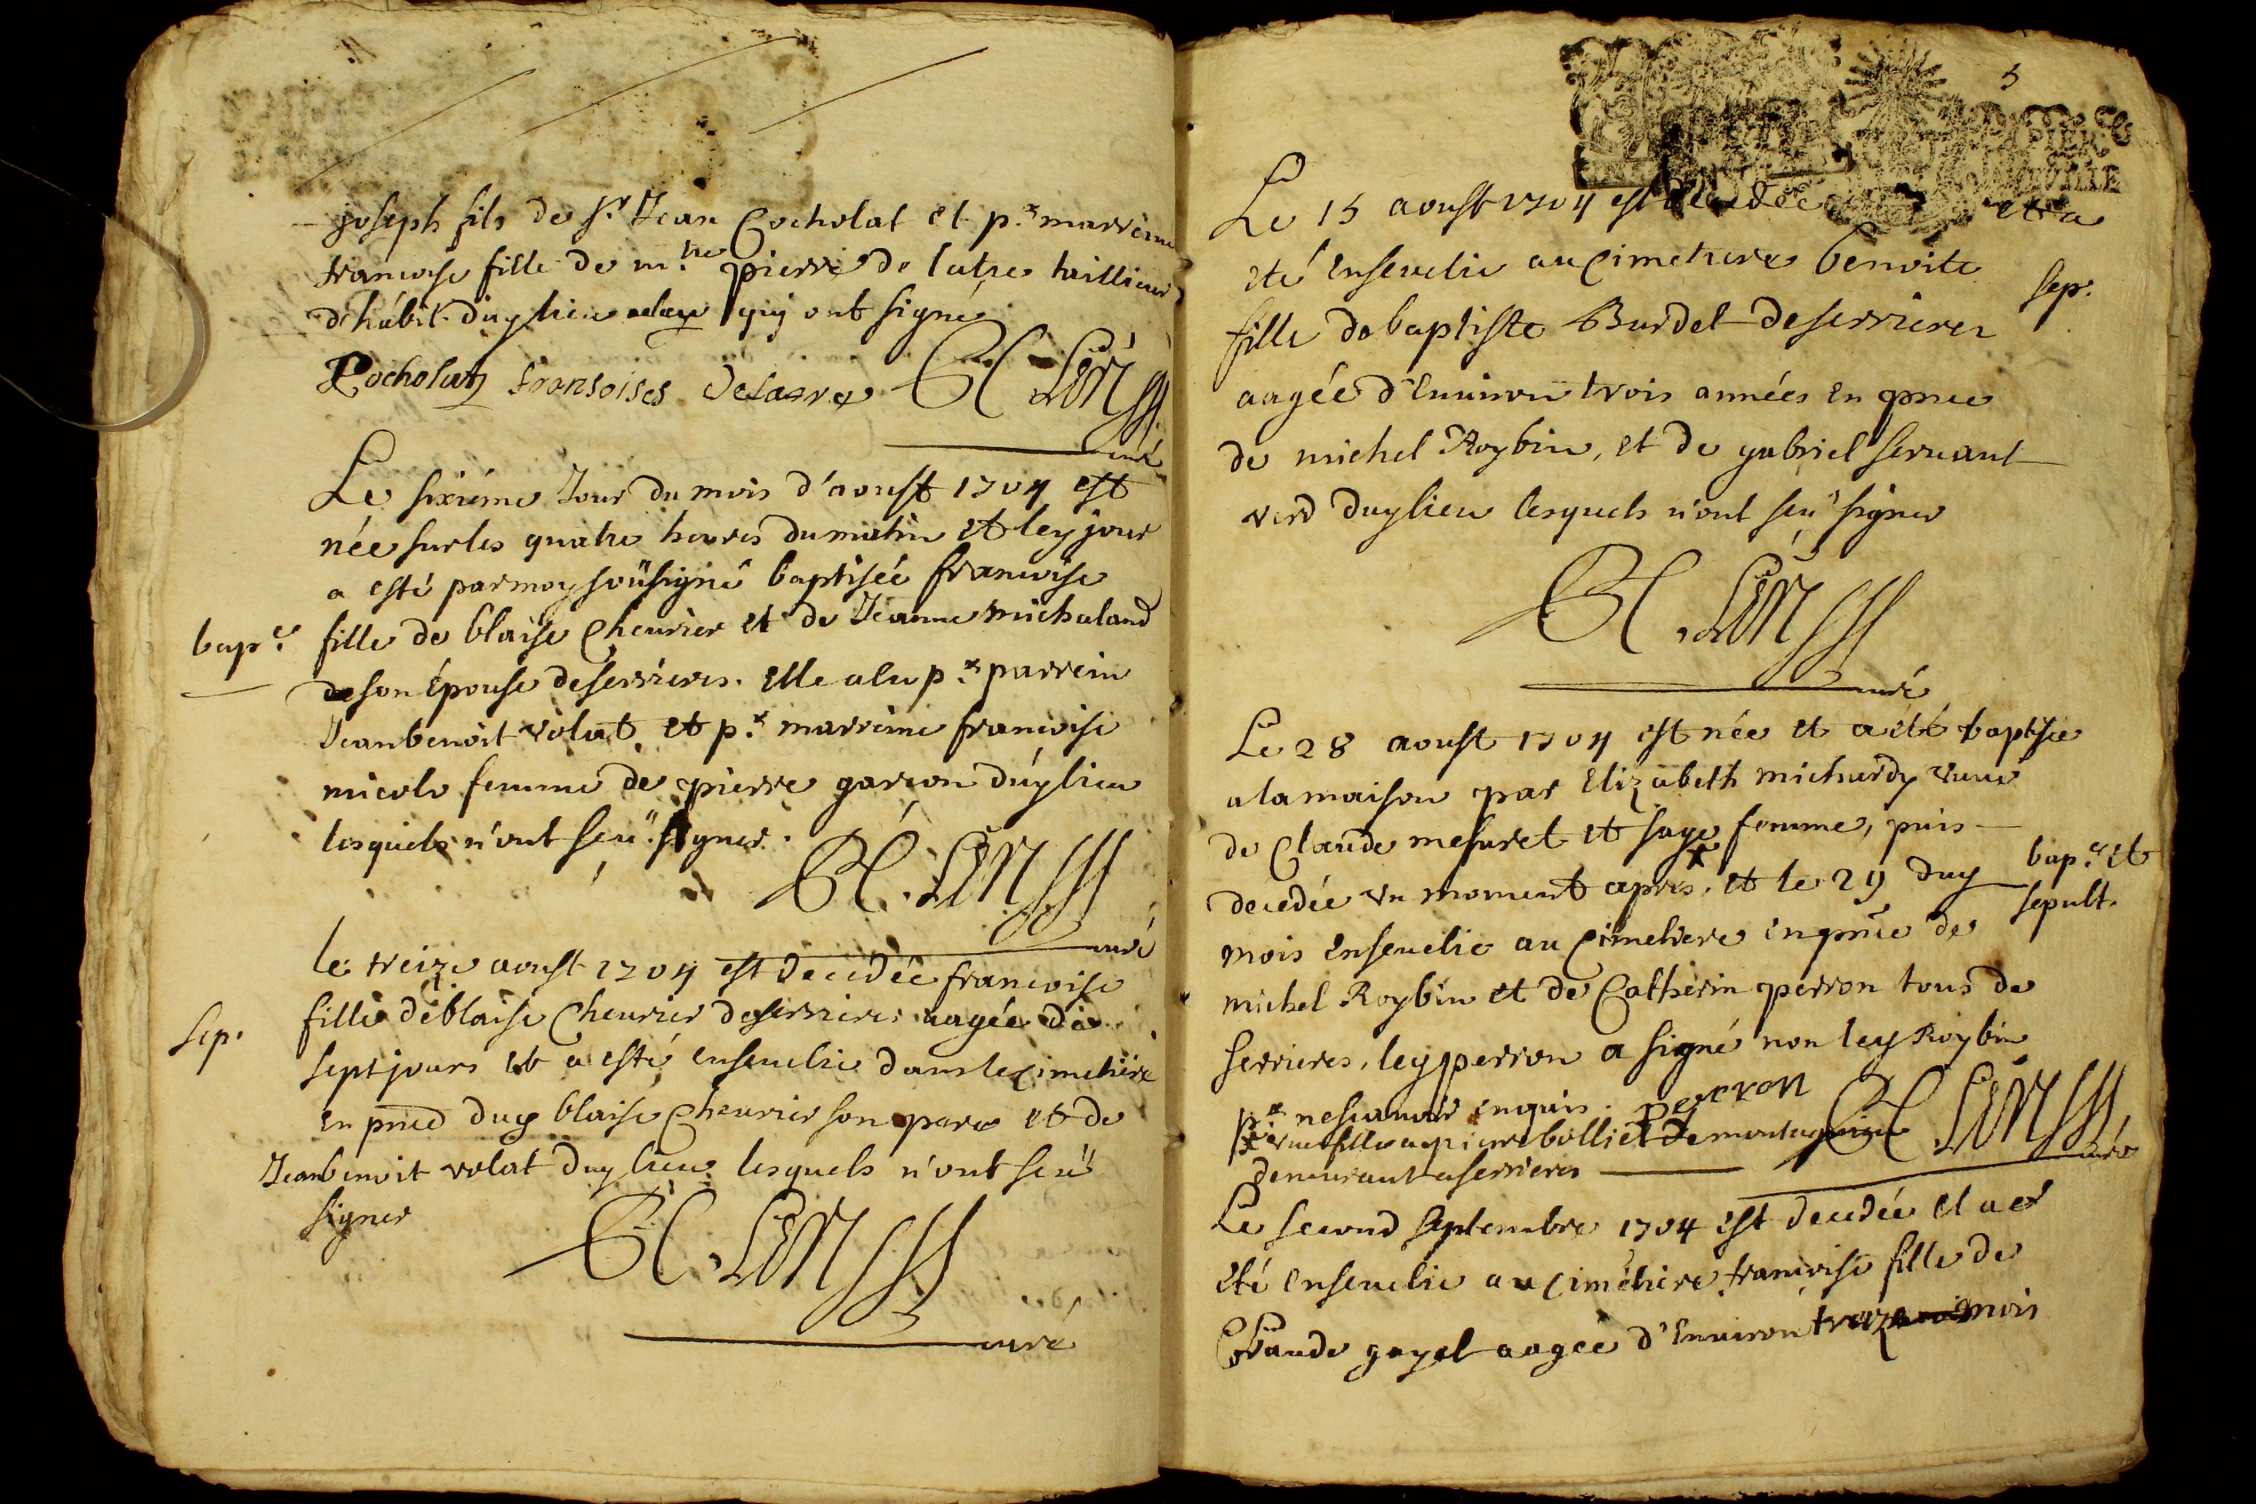 joseph fils de sr Jean Cocholat et p.r marreine
francoise fille de m.tre pierre de latre taillieur
d'habit duy lieu qui ont signé
Cocholat fransoises delatre
curé
Le sixiéme Jour du mois d'aoust 1704 est
née sur les quatre heures du matin et ley jour
a esté par moy soüsigné baptisée francoise
bap.e fille de blaise Cheurier et de Jeanne michaland
son épouse de serrieres. elle a eu p.r parrein
Jean benoit volat et p.r marreine francoise
nicolo femme de pierre garson duy lieu
lesquels n'ont seu signer.
curé
le treize aoust 1704 est decedée francoise
sep. fille de blaise Cheurier de serrieres aagée de
sept jours et a esté enseuelie dans le cimetiere
en pnce duy blaise Cheurier son pere et de
Jean benoit volat duy lieu lesquels n'ont seu
signer
curé
5
Le 15 aoust 1704 est decedée et a
eté enseuelie au cimetiere benoite
sep.
fille de baptiste Burdet de serrieres
aagée d'enuiron trois années en pnce
de michel Roybin, et de gabriel seruant
verd duy lieu lesquels n'ont seu signer
curé
Le 28 aoust 1704 est née et a eté baptisée
a la maison par Elizabeth michurdy veuue
de Claude mesuret et sage femme, puis
bap.e et
decedée un moment apres, et le 29 duy
sepult.
mois enseuelie au cimetiere en pnce de
michel Roybin et de Catherin perron tous de
serrieres, ley perron a signé non ley Roybin
p.r ne scauoir enquis. perron
une fille a pierre bolliet de montagnieu
demeurant a serrieres
curé
Le second septembre 1704 est decedée et a
eté enseuelie au cimetiere francoise fille de
Claude gayet aagée d'enuiron treize mois